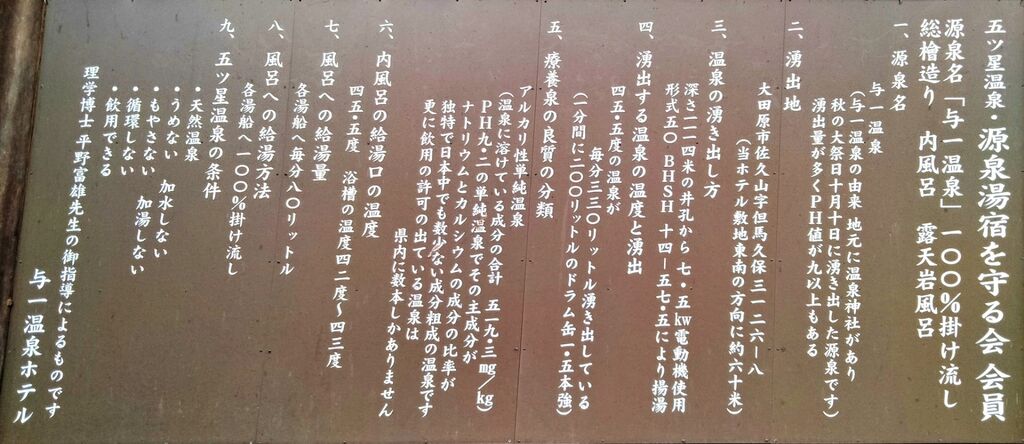 五ツ星温泉・源泉湯宿を守る会会員
源泉名「与一温泉」一〇〇%掛け流し
総檜造り 内風呂 露天岩風呂
一、源泉名
与一温泉
(与一温泉の由来 地元に温泉神社があり
秋の大祭日十月十日に湧き出した源泉です)
湧出量が多くPH値が九以上もある
二、湧出地
大田原市佐久山字但馬久保三一二六ー八
(当ホテル敷地東南の方向に約六十米)
三、温泉の湧き出し方
深さ二一四米の井孔から七・五kw電動機使用
形式五〇BHSH 十四ー五七・五により揚湯
四、湧出する温泉の温度と湧出
四五・五度の温泉が
毎分三三〇リットル湧き出している
(一分間に二〇〇リットルのドラム缶一・五本強)
五、療養泉の良質の分類
アルカリ性単純温泉
(温泉に溶けている成分の合計 五一九・三mg/kg)
PH九・二の単純温泉でその主成分が
ナトリウムとカルシウムの成分の比率が
独特で日本中でも数少ない成分粗成の温泉です
更に飲用の許可の出ている温泉は
県内に数本しかありません
六、内風呂の給湯口の温度
四五・五度 浴槽の温度四二度〜四三度
七、風呂への給湯量
各湯船へ毎分八〇リットル
八、風呂への給湯方法
各湯船へ一〇〇%掛け流し
九、五ツ星温泉の条件
・天然温泉
・うめない 加水しない
・もやさない 加湯しない
・循環しない
・飲用できる
理学博士平野富雄先生の御指導によるものです
与一温泉ホテル